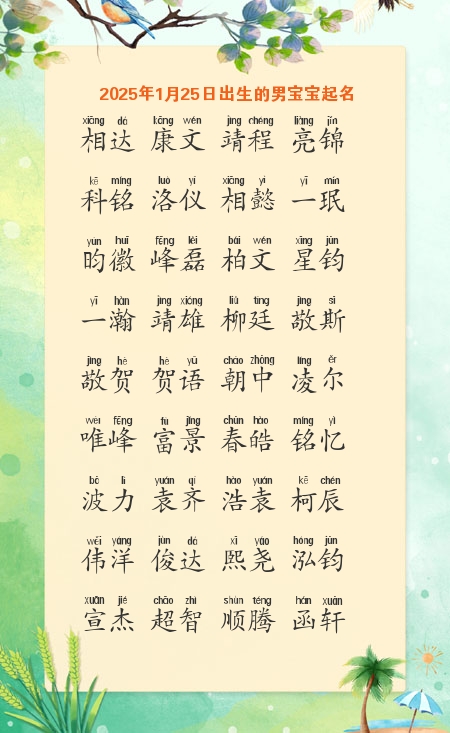 2025年1月25日出生的男宝宝起名
xiāng dá kāng wén jìng chéng liàng jǐn
相达 康文 靖程 亮锦
kē míng luò yí xiāng yì yī mín
科铭 洛仪 相懿 一珉
yún huī fēng lěi bǎi wén xīng jūn
昀徽 峰磊 柏文 星钧
yī hàn jìng xióng liǔ tíng jìng sī
一瀚 靖雄 柳廷 敬斯
jìng hè hè yǔ cháo zhōng líng ěr
敬贺 贺语 朝中 凌尔
wéi fēng fù jǐng chūn hào míng yì
唯峰 富景 春皓 铭忆
bō lì yuán qí hào yuán kē chén
波力 袁齐 浩袁 柯辰
wěi yáng jùn dá xī yáo hóng jūn
伟洋 俊达 熙尧 泓钧
xuān jié chāo zhì shùn téng hán xuān
宣杰 超智 顺腾 函轩